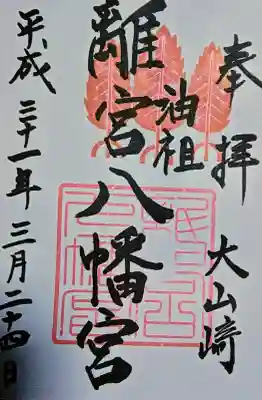 奉拝
大山崎
油祖
離宮八幡宮
平成三十一年三月二十四日